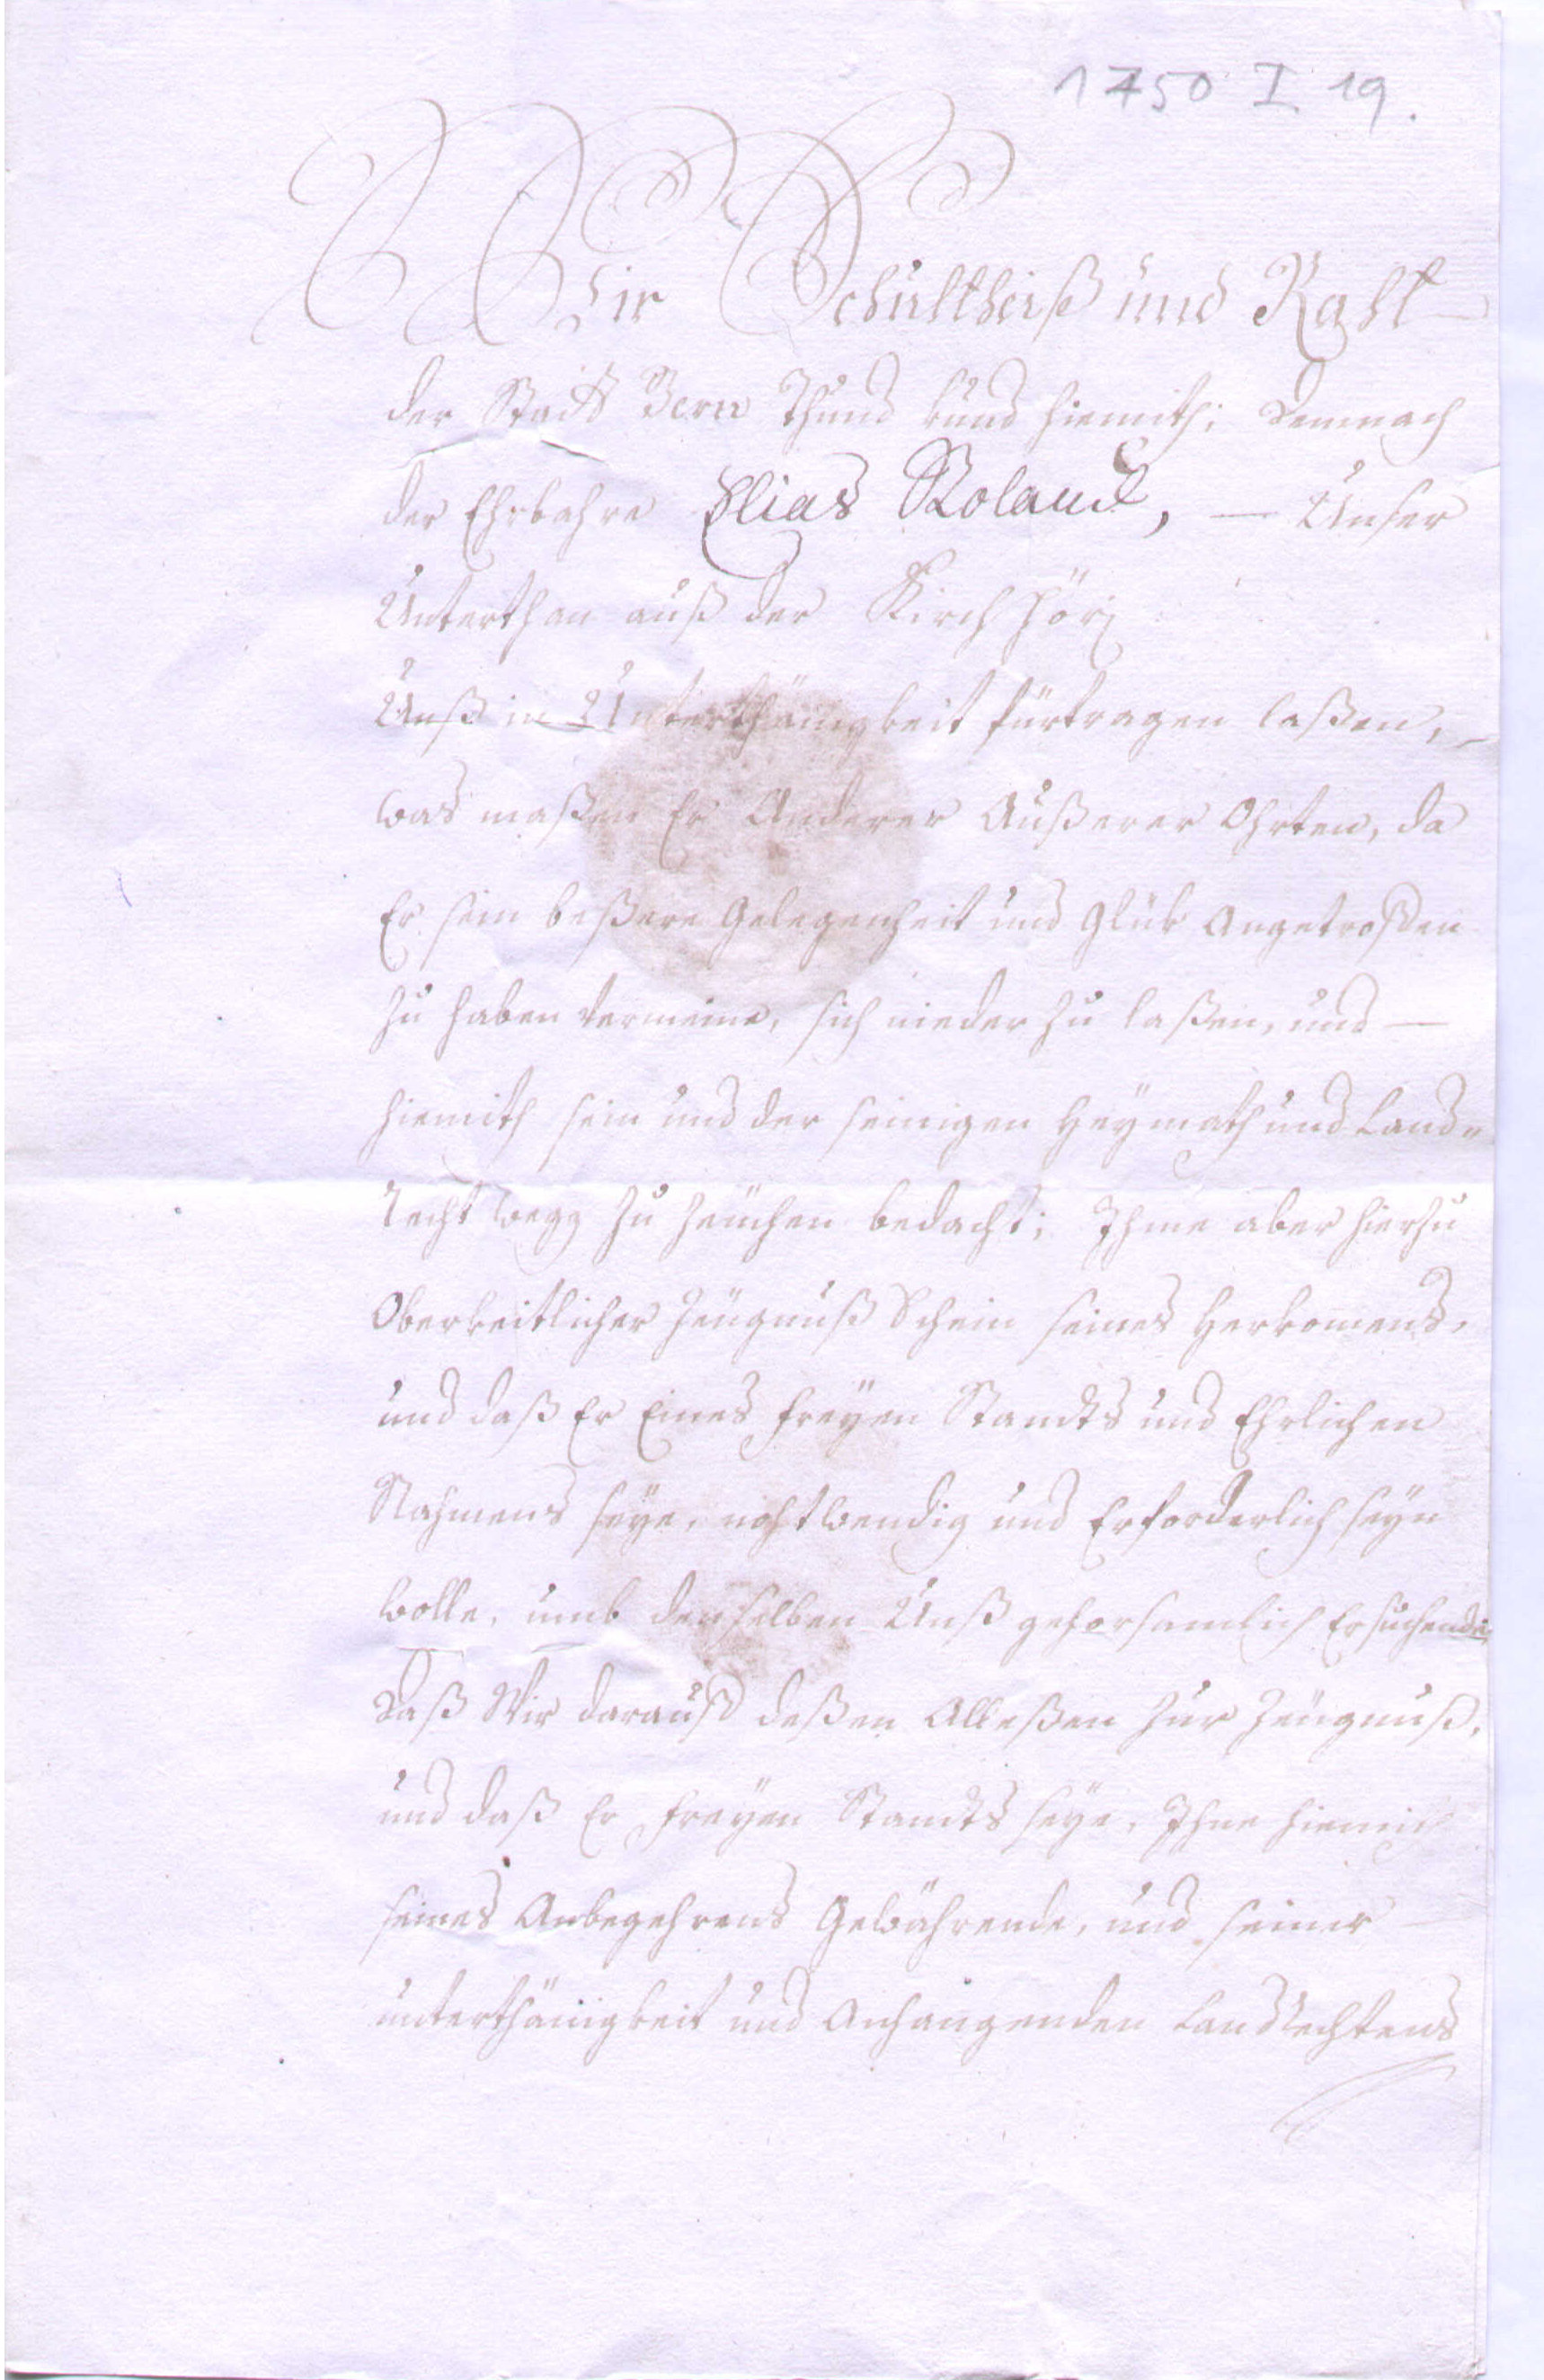 1750 I 19.
Wir Schultheiß und Raht
der Statt Bern Thund kund hiemith; Demnach
der Ehrbahre Elias Roland, — Unser
Unterthan auß der Kirchhörj
Unß in Unterthänigkeit fürtragen laßen,
was maßen Er Anderer Außerer Ohrten, da
Er sein beßere Gelegenheit und Glük Angetroffen
zu haben vermeine, sich nieder zu laßen, und —
hiemith sein und der seinigen Heymath und Land-
Recht wegg zu zeüchen bedacht; Ihme aber hierzu
Oberkeitlicher Zeügnuß Schein seines Herkomens,
und daß Er Eines freyen Standts und Ehrlichen
Nahmens seye, nohtwendig und Erforderlich seyn
wolle, umb denselben Unß gehorsamlich Ersuchende,
Daß Wir darauf deßen Alleßen zur Zeügnuß,
und daß Er freyen Standts seye, Ihne hiemit
seines Anbegehrens Gewährende, und seiner —
unterthänigkeit und Anhangenden Landrechtens